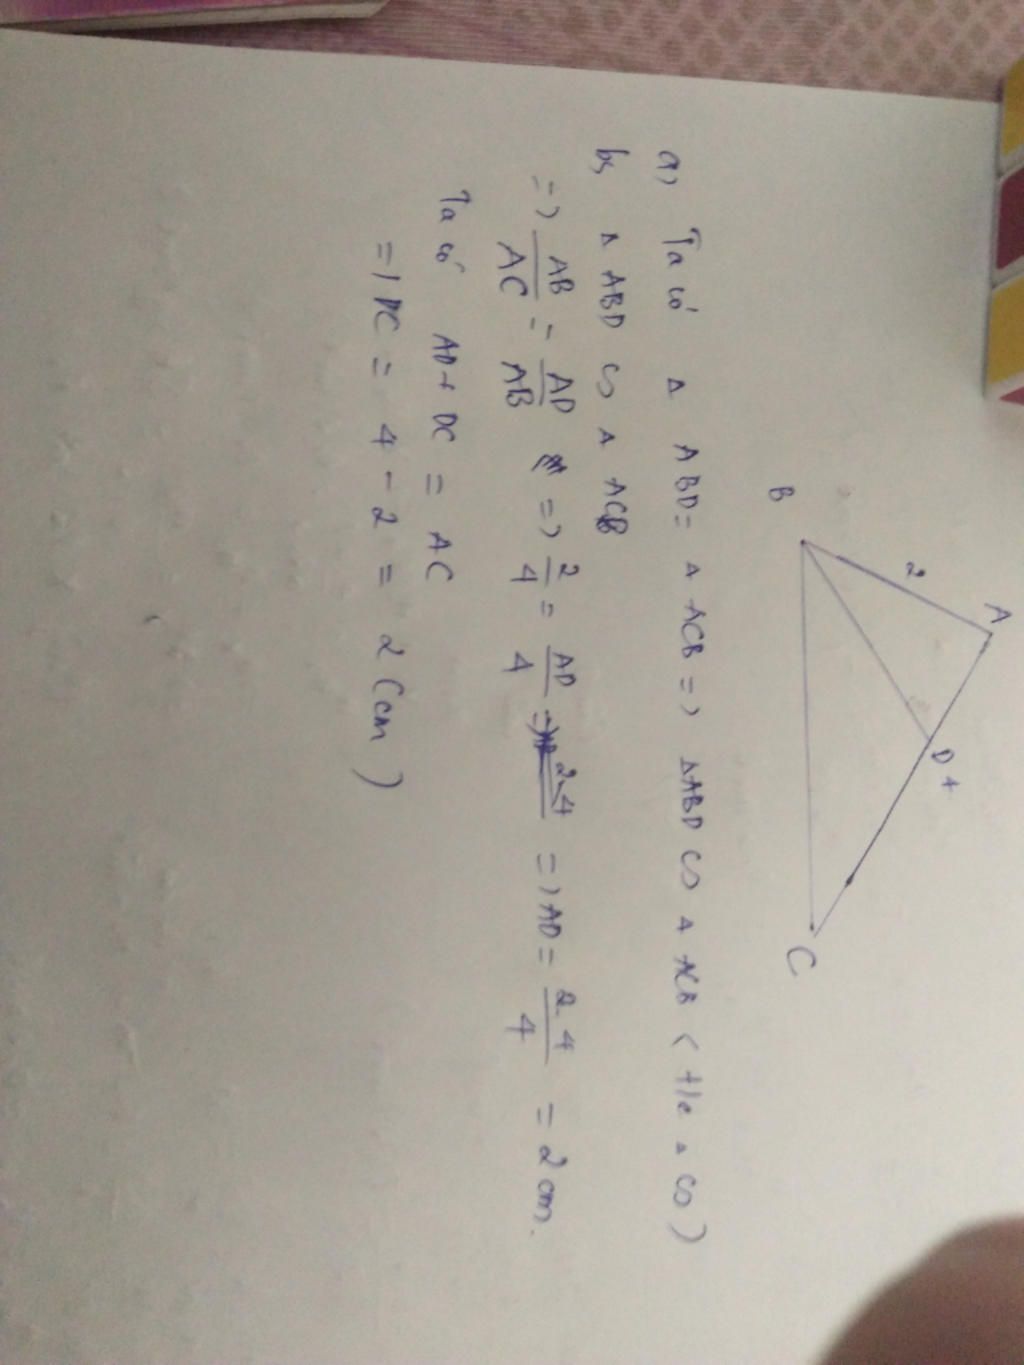 A
2
B
D 4
C
a) Ta có Δ ABD = Δ ACB => ΔABD ∽ Δ ACB ( t/c Δ ∽ )
b, Δ ABD ∽ Δ ACB
=> AB/AC = AD/AB => 2/4 = AD/4 => AD = 2.4/4 = 2 cm.
Ta có AD + DC = AC
=> DC = 4 - 2 = 2 (cm)